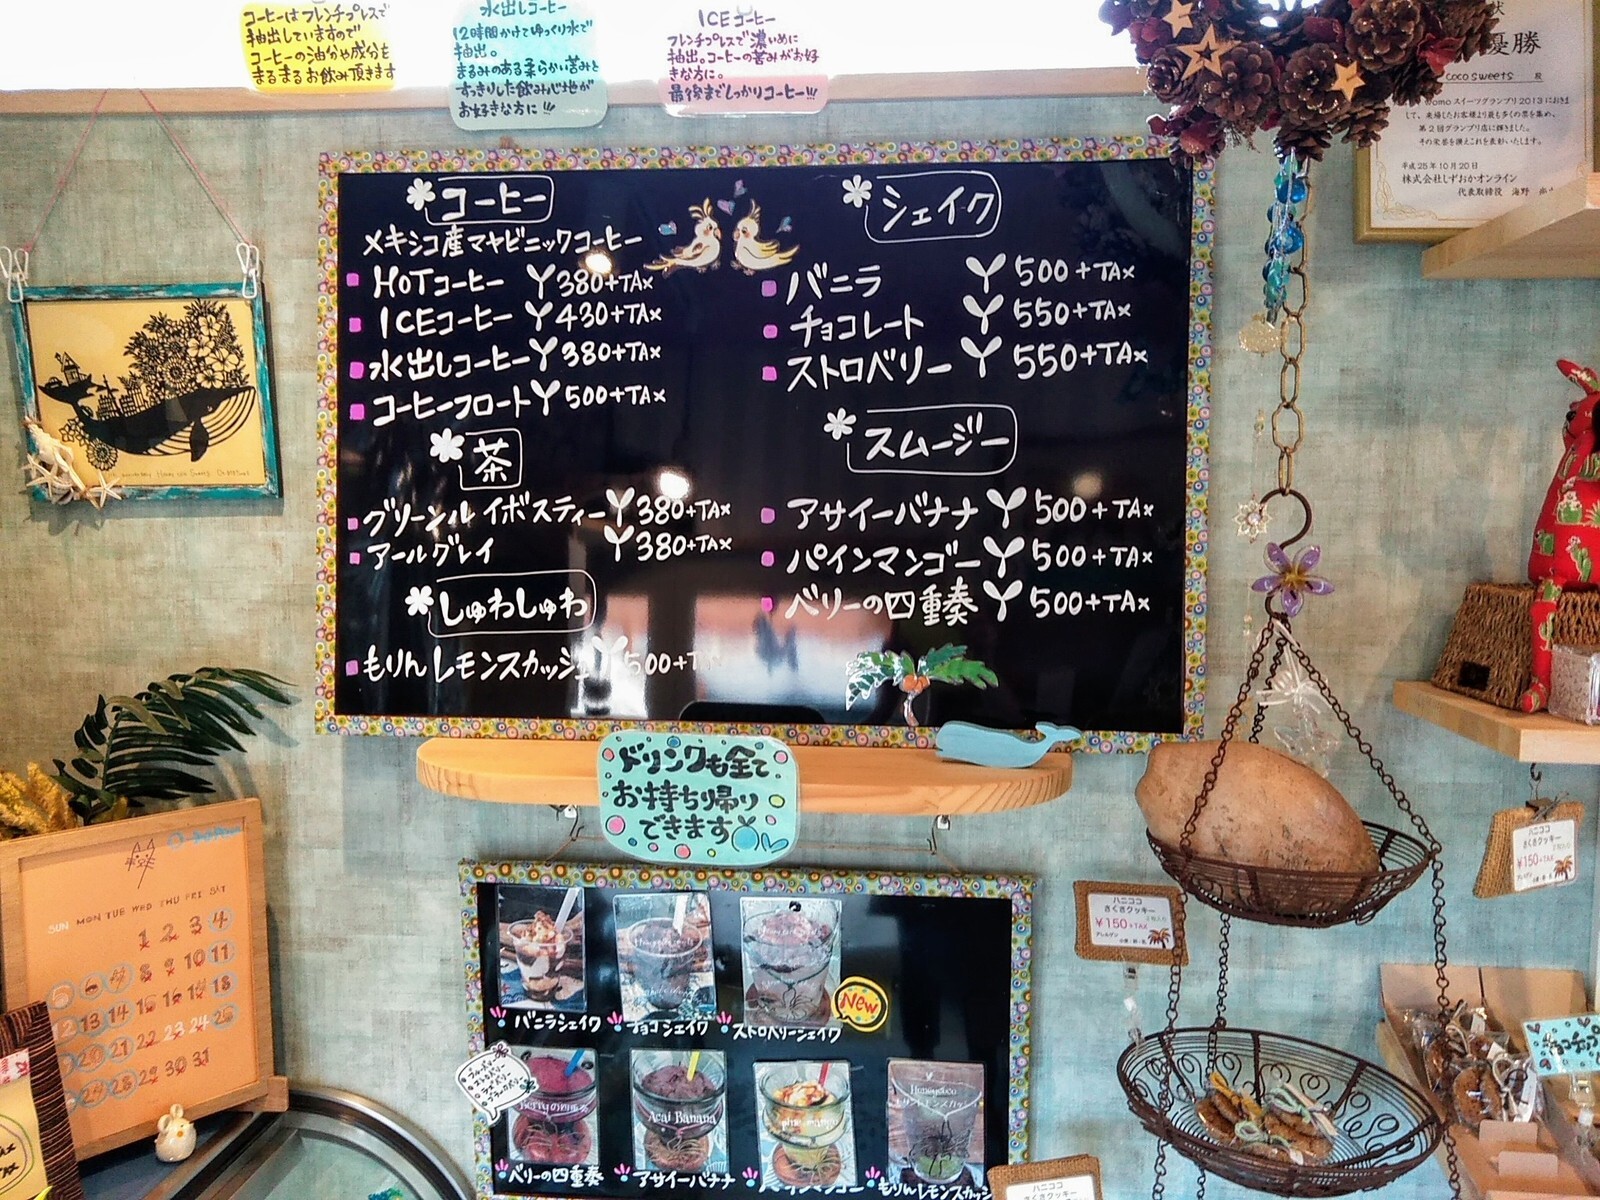 コーヒーはフレンチプレスで
抽出していますので
コーヒーの油分や成分を
まるまるお飲み頂きます
水出しコーヒー
12時間かけてゆっくり水で
抽出。
まるみのある柔らかい苦みと
すっきりした飲み心地が
お好きな方に!!!
ICEコーヒー
フレンチプレスで濃いめに
抽出。コーヒーの苦みがお好
きな方に。
最後までしっかりコーヒー!!!
状
優勝
coco sweets 殿
womoスイーツグランプリ2013におき
して、来場したお客様より最も多くの票を集め、
第2回グランプリ店に輝きました。
その栄誉を讃えこれを表彰いたします。
平成25年10月20日
株式会社しずおかオンライン
代表取締役 海野
コーヒー
メキシコ産マヤビニックコーヒー
HOTコーヒー ¥380+TAX
ICEコーヒー ¥430+TAX
水出しコーヒー ¥380+TAX
コーヒーフロート ¥500+TAX
茶
グリーンルイボスティー ¥380+TAX
アールグレイ ¥380+TAX
しゅわしゅわ
もりんレモンスカッシュ ¥500+TAX
シェイク
バニラ ¥500+TAX
チョコレート ¥550+TAX
ストロベリー ¥550+TAX
スムージー
アサイーバナナ ¥500+TAX
パインマンゴー ¥500+TAX
ベリーの四重奏 ¥500+TAX
ドリンクも全て
お持ち帰り
できます
バニラシェイク
チョコシェイク
ストロベリーシェイク
New
Berryの四重奏
Acai Banana
Honeycoco
ベリーの四重奏
アサイーバナナ
パインマンゴー
もりんレモンスカッシ
SUN MON TUE WED THU FRI SAT
1 2 3 4
8 9 10 11
12 13 14 15 16 17 18
20 21 22 23 24 25
28 29 30 31
ハニココ
さくさくクッキー
¥150+TAX
ハニココ
さくさくクッキー
¥150+TAX
ハニココ
さくさくクッキー